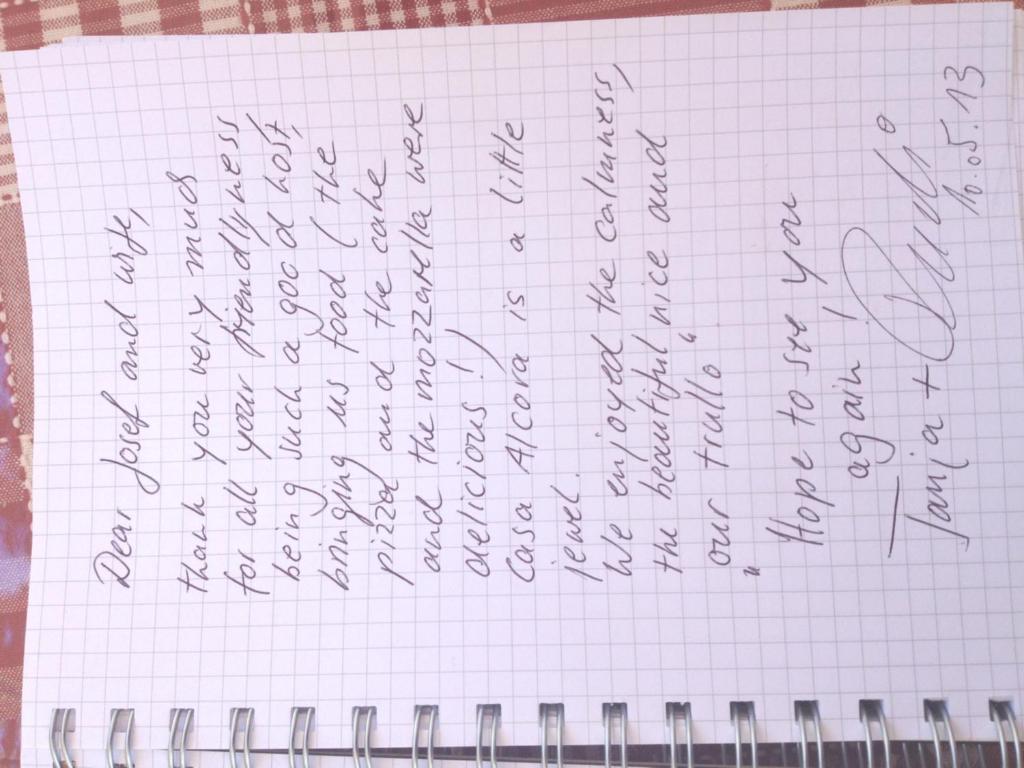 Dear Josef and wife,
thank you very much
for all your friendlyness,
being such a good host,
bringing us food ( the
pizza and the cake
and the mozzarella were
delicious ! )
Casa Alcora is a little
jewel.
We enjoyed the calmness,
the beautiful nice and
„ our trullo “
Hope to see you
again !
Tanja +
10.05.13